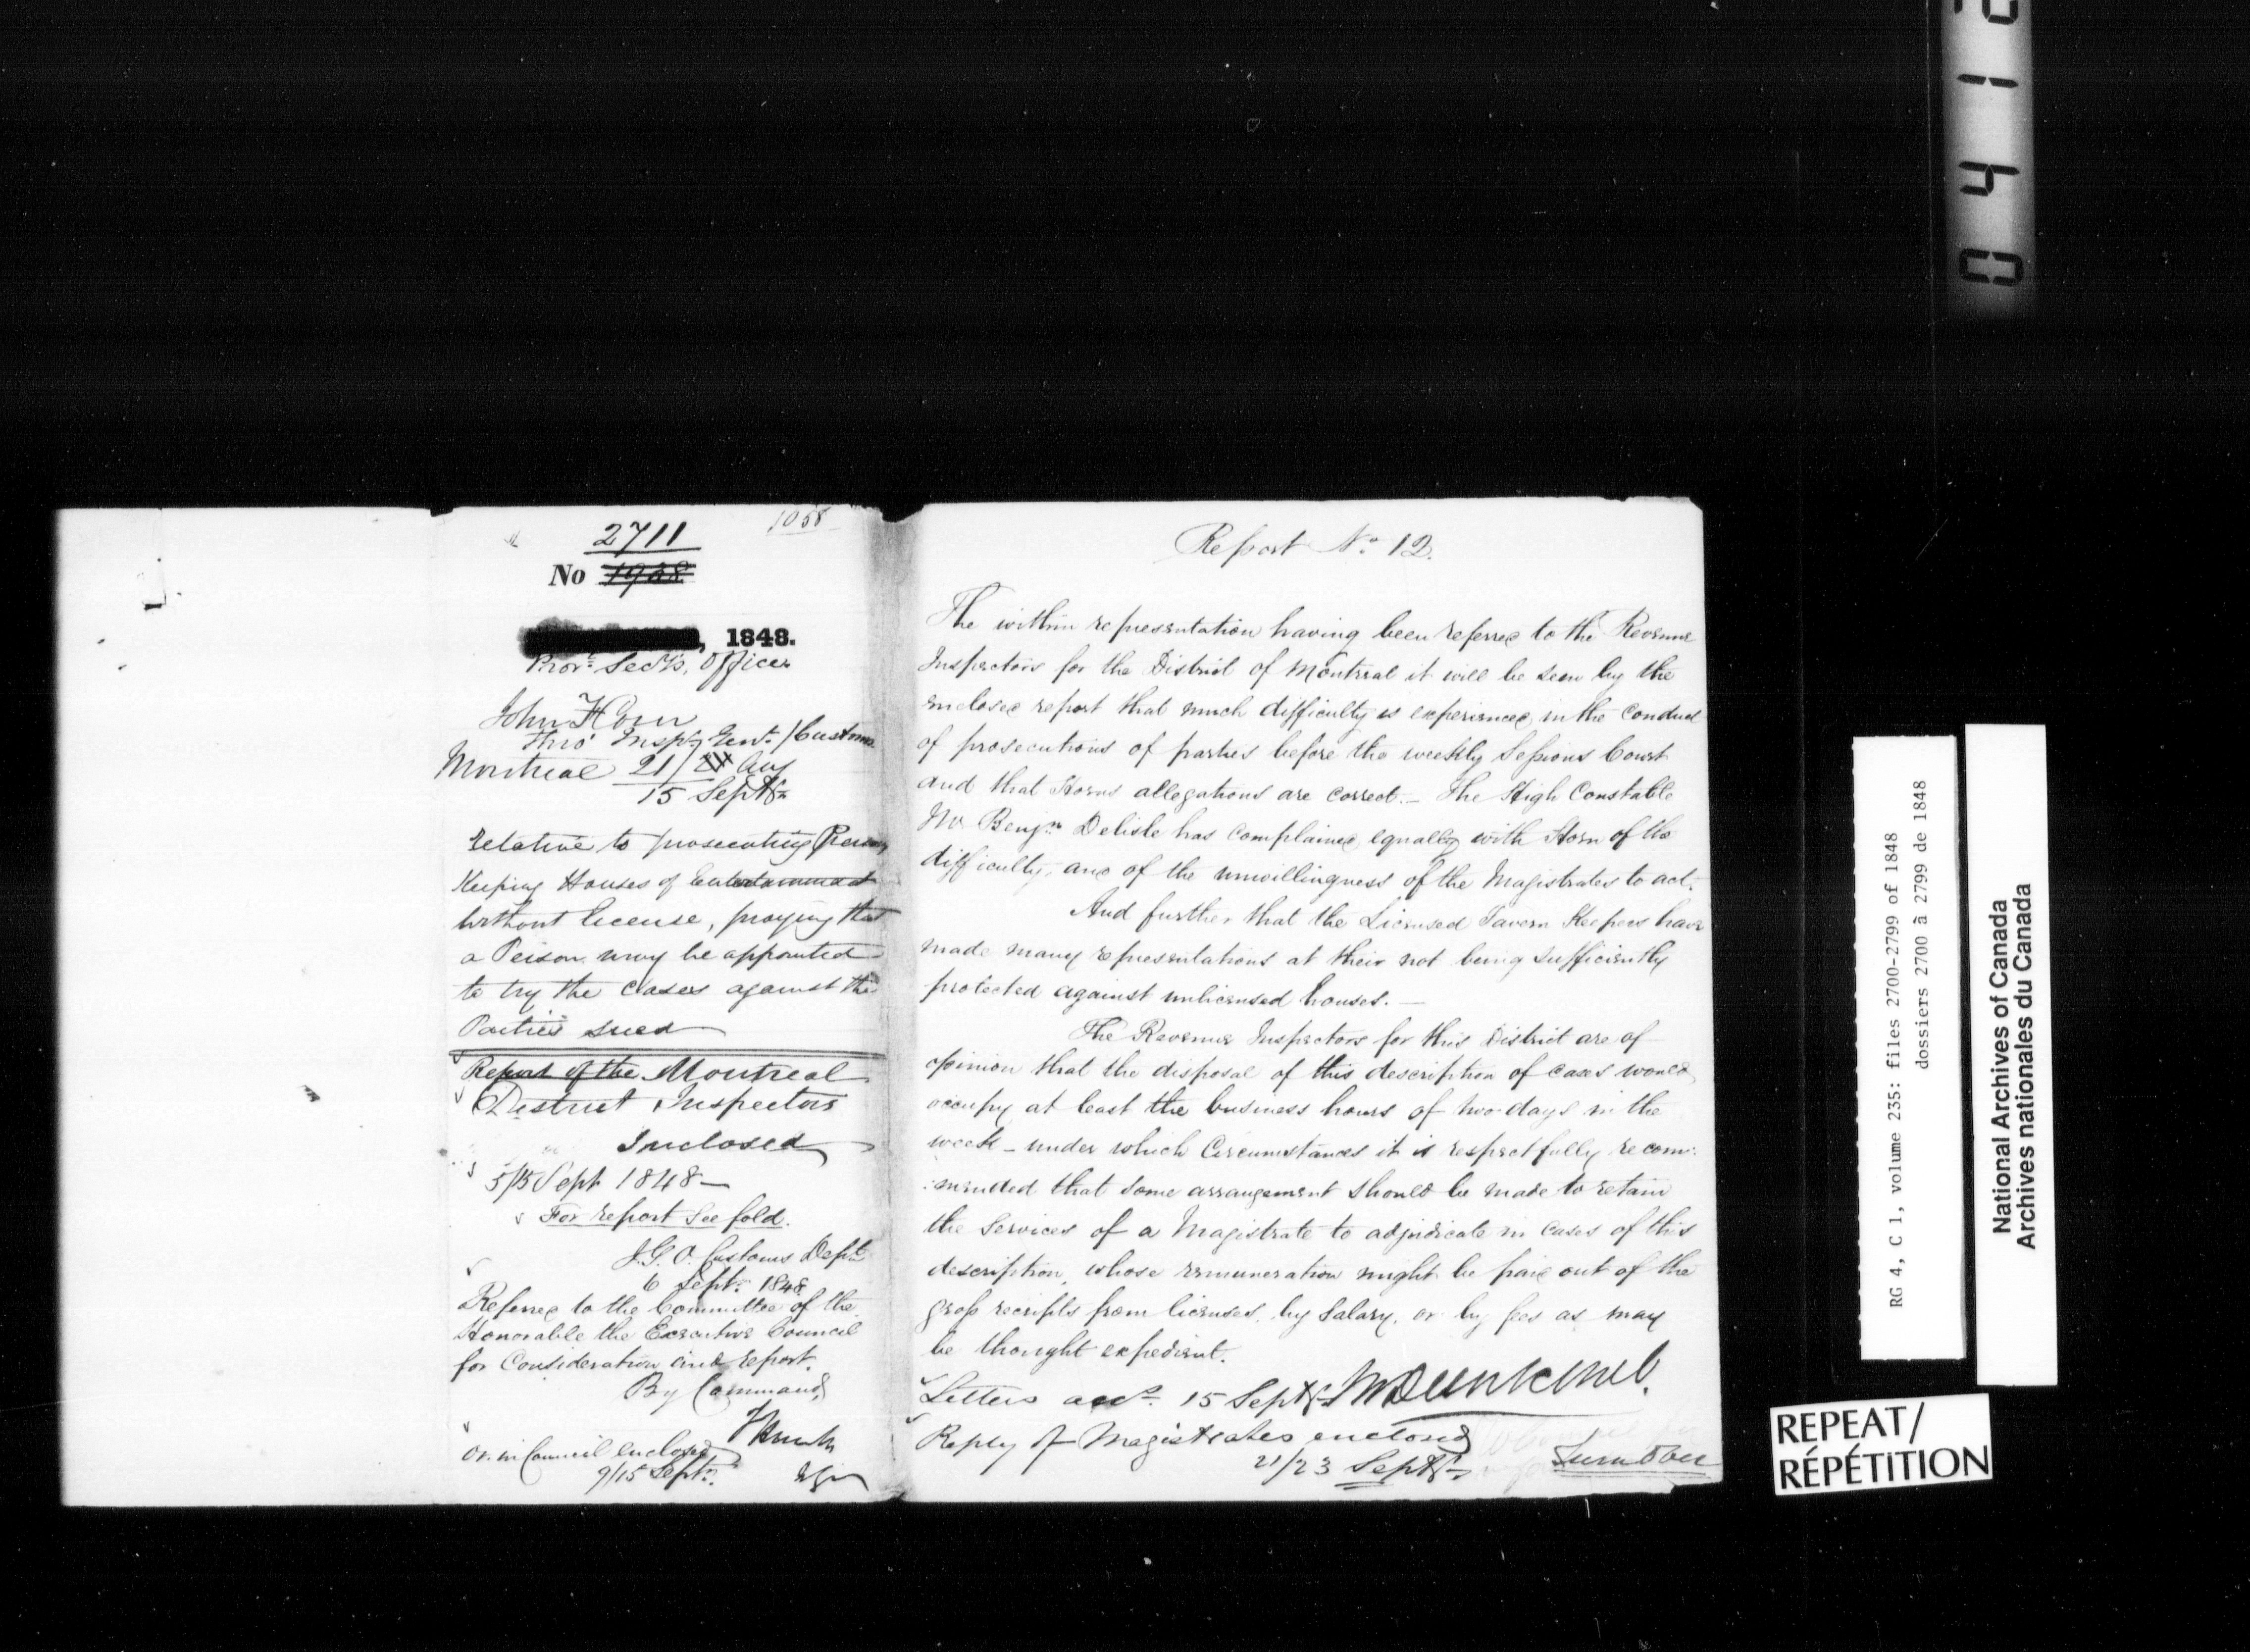 1058
2711
No 1968
, 1848.
Prov. Sec'y's. Office
John Horn
Thro' Insp'g Genl. / Customs
Montreal 21/ Aug
15 Septr
relative to prosecuting Persons
Keeping Houses of Entertainment
without license, praying that
a Person may be appointed
to try the cases against the
Parties sued
Report of the Montreal
District Inspectors
Inclosed
5/15 Sept 1848 —
For report See fold.
I.G.O. Customs Dept
6 Sept. 1848
Referred to the Committee of the
Honorable the Executive Council
for Consideration and report.
By Command,
Or. in Council enclosed
9/15 Sept.
Elgin
Report No. 12.
The within representation having been referred to the Revenue
Inspectors for the District of Montreal it will be seen by the
enclosed report that much difficulty is experienced in the Conduct
of prosecutions of parties before the weekly Sessions Court
and that Horns allegations are correct. — The High Constable
Mr Benjn Delisle has complained equally with Horn of the
difficulty, and of the unwillingness of the Magistrates to act.
And further that the Licensed Tavern Keepers have
made many representations at their not being sufficiently
protected against unlicensed houses. —
The Revenue Inspectors for this District are of
opinion that the disposal of this description of cases would
occupy at least the business hours of two days in the
week — under which Circumstances it is respectfully recom:
:mended that some arrangement should be made to retain
the Services of a Magistrate to adjudicate in cases of this
description, whose remuneration might be paid out of the
gross receipts from licenses, by Salary, or by fees as may
be thought expedient.
Letters accg. 15 Septr
Reply of Magistrates enclosed
21/23 Septr
Turn Over
0412
RG 4, C 1, volume 235: files 2700-2799 of 1848
dossiers 2700 à 2799 de 1848
National Archives of Canada
Archives nationales du Canada
REPEAT/
RÉPÉTITION